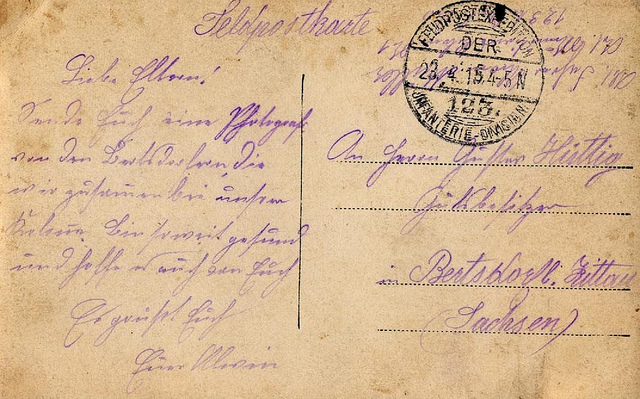 Feldpostkarte
Liebe Eltern!
Sende Euch eine Photograf.
von den Bertsdorfern, die
wir zusammen bei unserer
Kolonne. Bin soweit gesund
und hoffe es auch von Euch
Es grüßt Euch
Euer Alwin
FELDPOSTEXPEDITION
DER
23.4.15.4-5N
123.
INFANTERIE-DIVISION
An Herrn Gustav Hüttig
Gutsbesitzer
in Bertsdorf b. Zittau
(Sachsen)